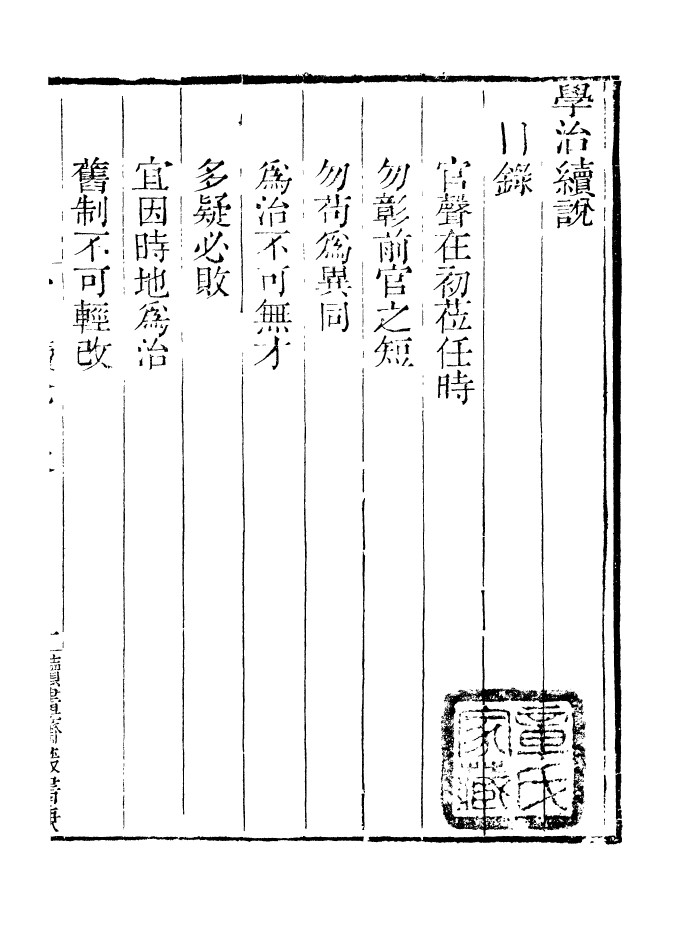 學治續說
目錄
官聲在初莅任時
勿彰前官之短
勿苟爲異同
爲治不可無才
多疑必敗
宜因時地爲治
舊制不可輕改
章氏家藏